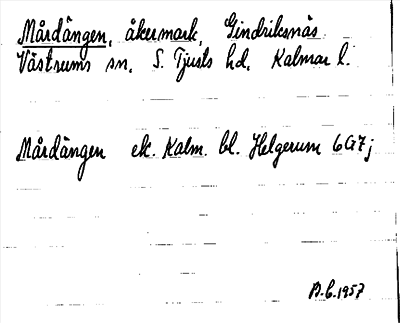 Mårdängen, åkermark, Gindriksnäs
Västrums sn, S. Tjusts hd, Kalmar l.
Mårdängen ek. Kalm. bl. Helgerum 6G7j
B.C. 1957